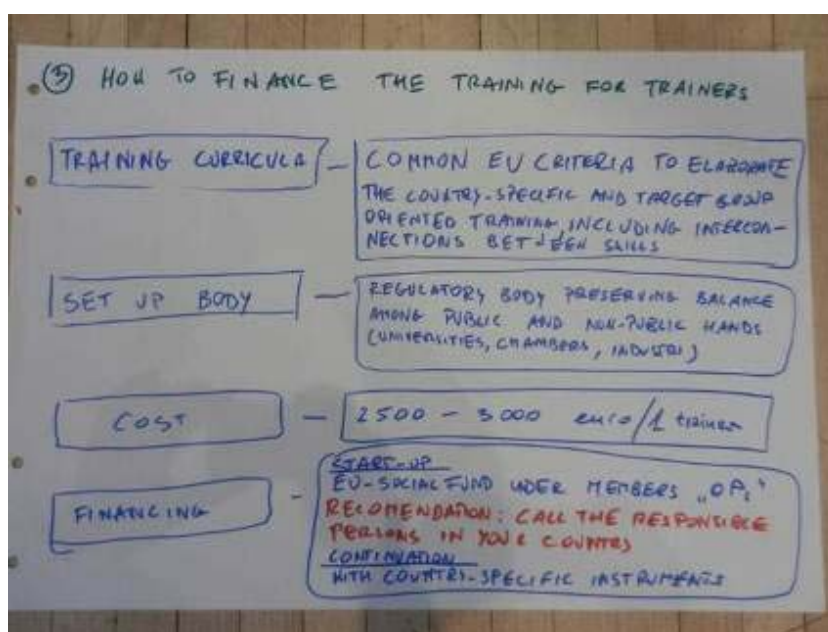 ③ HOW TO FINANCE THE TRAINING FOR TRAINERS
TRAINING CURRICULA — COMMON EU CRITERIA TO ELABORATE
THE COUNTRY-SPECIFIC AND TARGET GROUP
ORIENTED TRAINING INCLUDING INTERCON-
NECTIONS BETWEEN SKILLS
SET UP BODY — REGULATORY BODY PRESERVING BALANCE
AMONG PUBLIC AND NON-PUBLIC HANDS
(UNIVERSITIES, CHAMBERS, INDUSTRY)
COST — 2500 – 3000 euro/1 trainer
START-UP
FINANCING - EU-SOCIAL FUND UDER MEMBERS „OPs“
RECOMENDATION: CALL THE RESPONSIBLE
PERSONS IN YOUR COUNTRY
CONTINUATION
WITH COUNTRY-SPECIFIC INSTRUMENTS